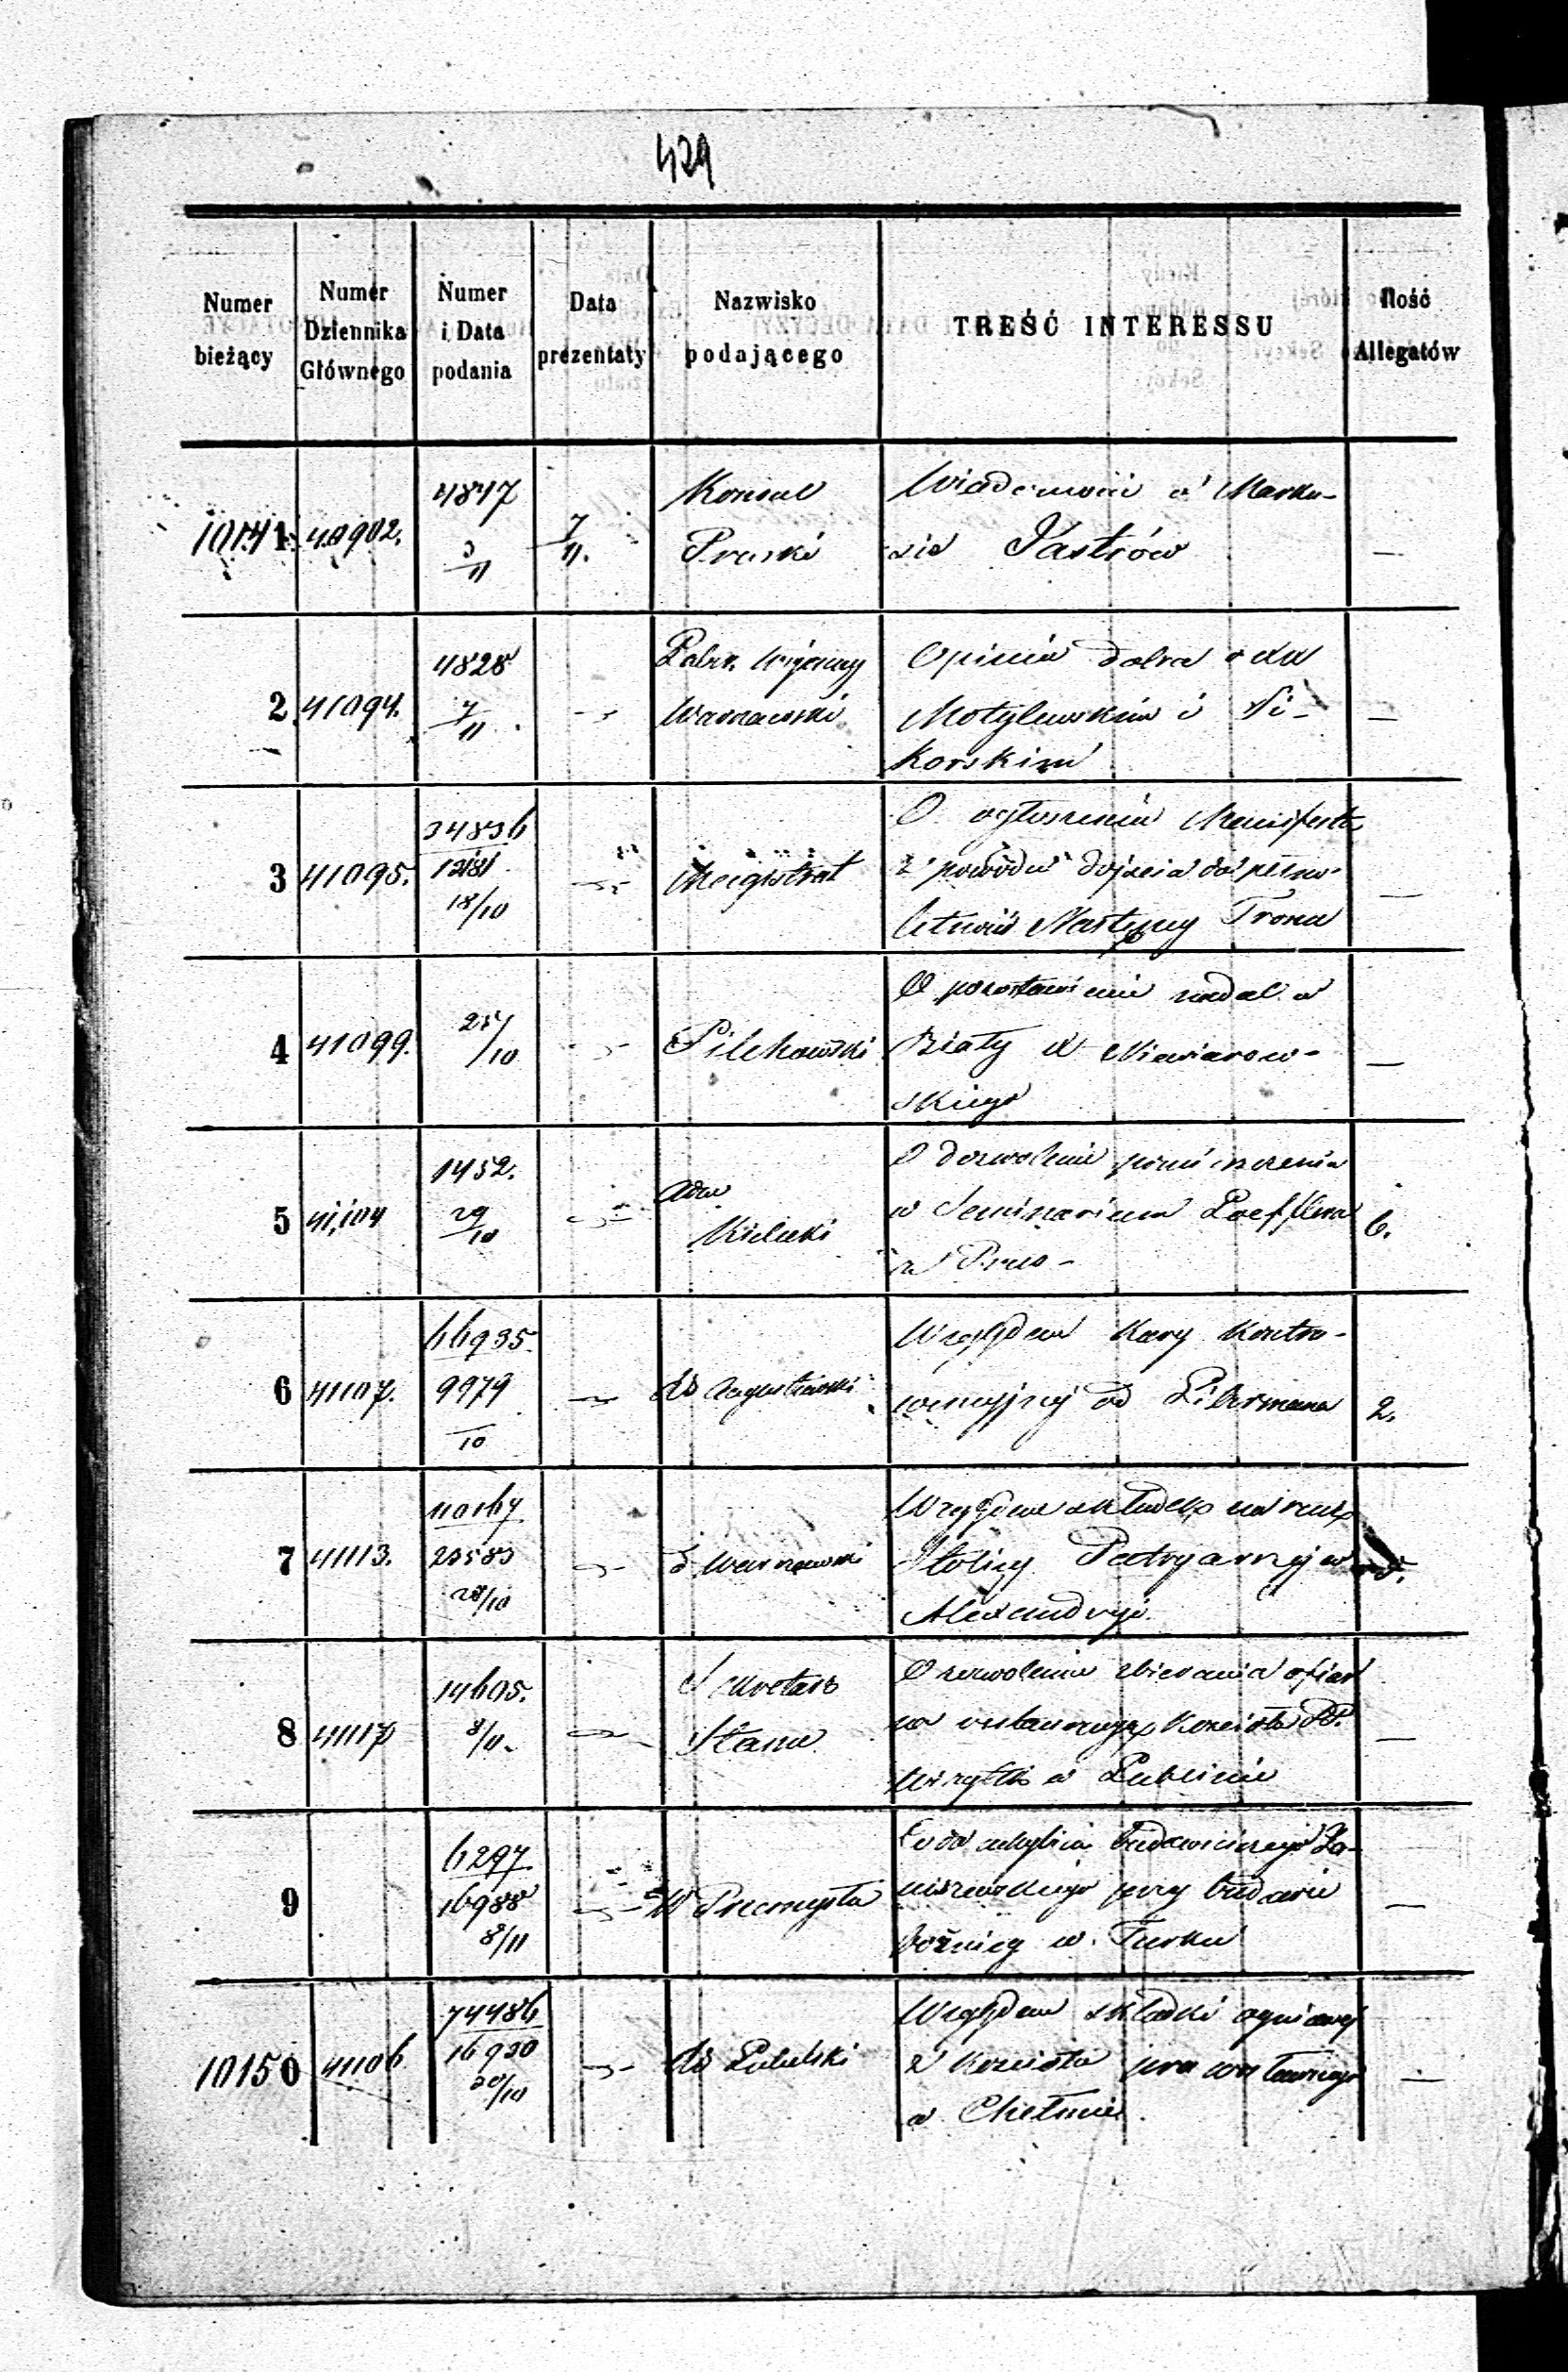 429
Numer bieżący
Numer Dziennika Głównego
Numer i Data podania
Data prezentaty
Nazwisko podającego
TREŚĆ INTERESSU
Ilość Allegatów
10141 40902. 4847 3/11 7/11. Konsul Pruski
Wiadomość o Marku-
sie Jastrów —
2 41094. 4828 7/11 Wojenny Warszawski
Opinia dobra o
Motylewskim i Si-
korskim —
3 41095. 34836 18/10 Magistrat
O ogłoszeniu Manifestu
z powodu dojścia do pełno-
letności Następcy Tronu —
4 41099. 25/10 Pilchowski
O pozostawienie nadal w
Biały
skiego —
5 41,104 1452. 29/10 Kielecki
O dozwolenie pomieszczenia
w Seminarium Loefflera
z Prus - 6.
6 41107. 66935 9979 /10 Augustowski
Względem Kary Kontra-
wencyjnej od Libermana 2.
7 41113. 110167 23583 28/10 Warszawski
Względem składek na rzecz
Stolicy Patryarszej w
Alexandryi.
8 41117 14605. 8/11. Sekretarz Stanu
O zezwolenie zbierania ofiar
na restauracyą Kościoła PP.
Wizytek w Lublinie —
9 6297 16988 8/11 Przemysła
Co do uchybień budowniczego
przy budowie
bożnicy w Turku —
10150 41106 74486 16930 30/10 Lubelski
Względem składki ogniowej
z Kościoła prawosławnego
w Chełmie. —